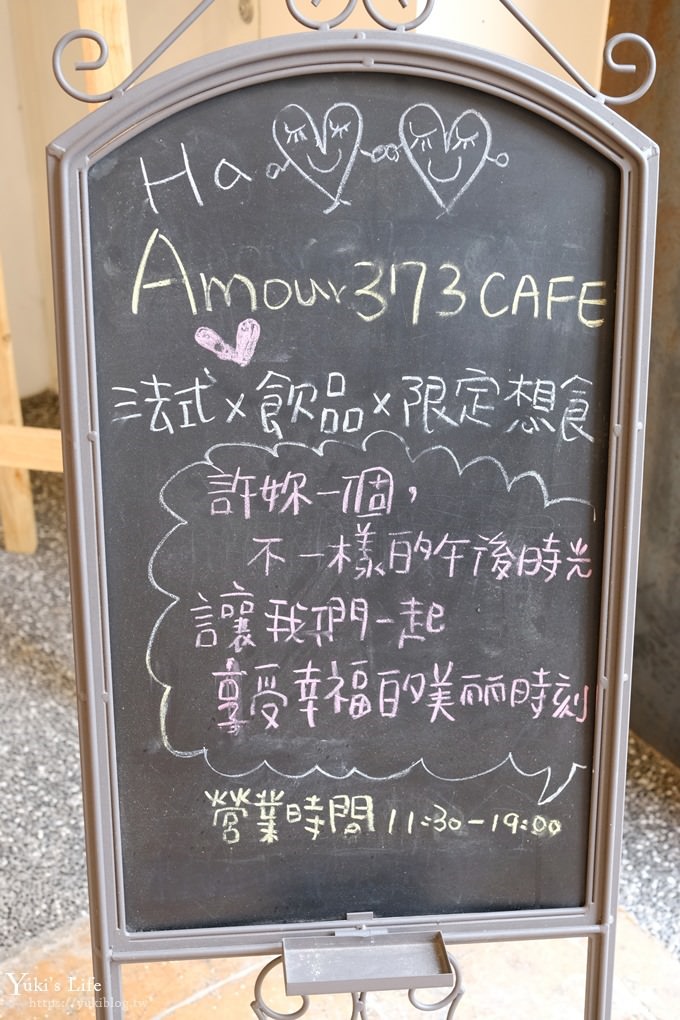 Ha
Amour 373 CAFE
法式x飲品x限定想食
許妳一個，
不一樣的午後時光
讓我們一起
享受幸福的美丽時刻
營業時間 11:30-19:00
Yuki's Life
https://yukiblog.tw